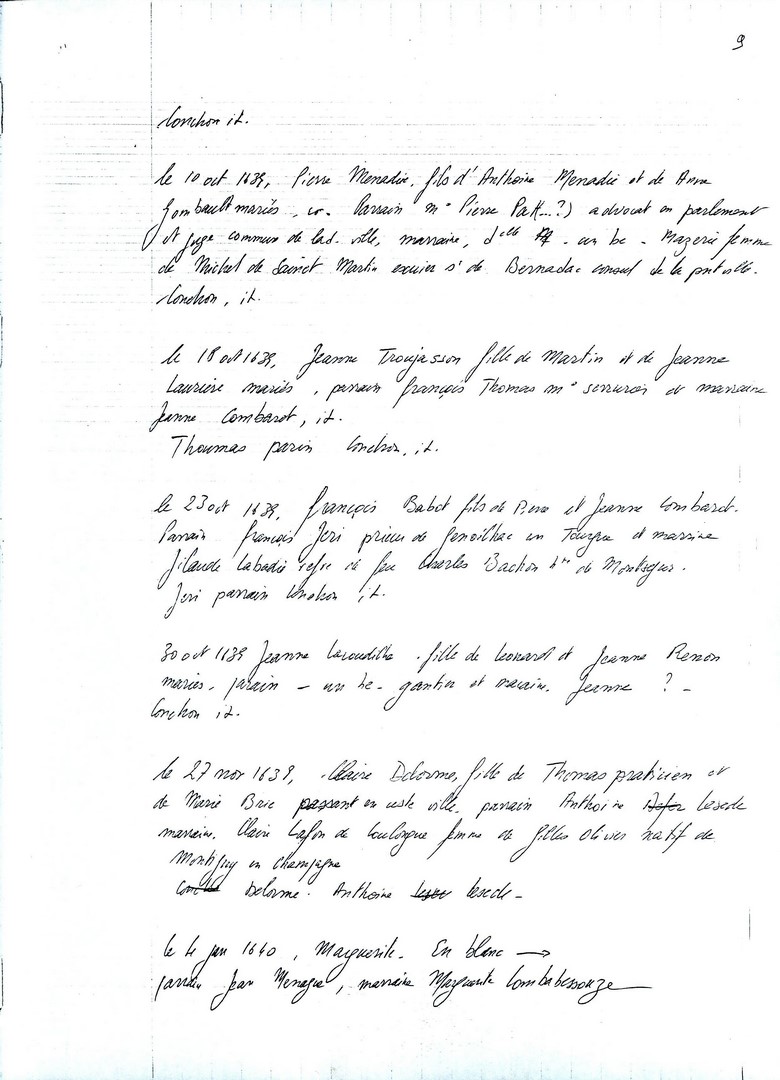 9
Conchon it.
le 10 oct 1639, Pierre Menadie, fils d'Anthoine Menadie et de Anne
Gombault mariés, Parrain me Pierre Patt...?) advocat en parlement
et juge commun de lad. ville, marraine, delle - un bc - Mazerie femme
de Michel de Sainct Martin escuier sr de Bernadac consul de la pnt ville.
Conchon, it.
le 18 oct 1639, Jeanne Troujasson fille de Martin et de Jeanne
Lauriere mariés, parrain françois Thomas me serrurier et marraine
Jeanne Combarot, it.
Thoumas parin Conchon, it.
le 23 oct 1639, françois Babot fils de Pierre et Jeanne Combarot.
Parrain françois Jeri prieur de Genoilhac en et marrine
Labadie de feu Charles Bachon de
Jeri parrain Conchon it.
30 oct 1639 Jeanne fille de Leonard et Jeanne Renon
mariés, parain - un bc - gantier et maraine, Jeanne ? -
Conchon it.
le 27 nov 1639, Claire Delorme, fille de Thomas praticien et
de Marie Brie passant en ceste ville, parrain Anthoine Lesede
marraine, Claire Lafon de femme de Gilles Olivier natif de
Montigny en Champagne
Delorme. Anthoine Lesede -
le 4 jan 1640, Marguerite. En blanc →
parrain Jean Menagie, marraine Marguerite Combabessouze